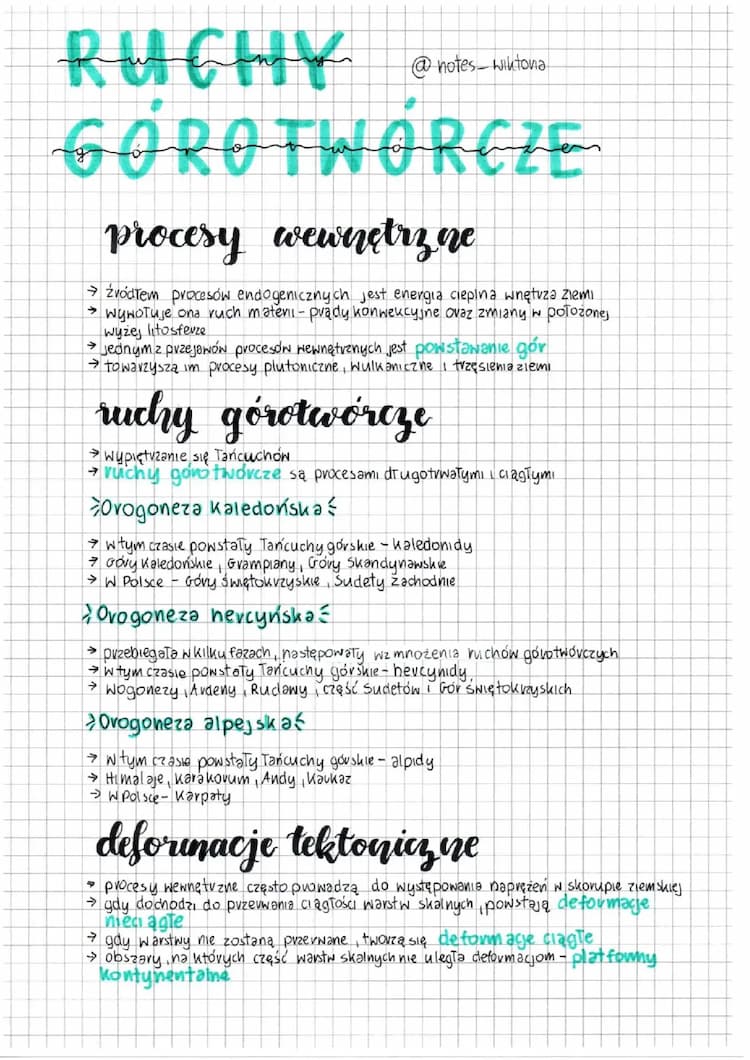 RUCHY
@notes_wiktoria
GÓROTWÓRCZE
procesy wewnętrzne
→ źródłem procesów endogenicznych jest energia cieplna wnętrza ziemi
→ wywołuje ona ruch materii - prądy konwekcyjne oraz zmiany w położonej
wyżej litosferze
→ jednym z przejawów procesów wewnętrznych jest powstawanie gór
→ towarzyszą im procesy plutoniczne, wulkaniczne i trzęsienia ziemi
ruchy górotwórcze
→ wypiętrzanie się łańcuchów
→ ruchy górotwórcze są procesami długotrwałymi i ciągłymi
Orogoneza kaledońska
→ w tym czasie powstały łańcuchy górskie - kaledonidy
→ Góry Kaledońskie, Grampiany, Góry Skandynawskie
→ W Polsce - Góry Świętokrzyskie, Sudety Zachodnie
Orogoneza hercyńska
→ przebiegała w kilku fazach, następowały wzmnożenia ruchów górotwórczych
→ w tym czasie powstały łańcuchy górskie - hercynidy
→ Wogonezy, Ardeny, Rudawy, część Sudetów i Gór Świętokrzyskich
Orogoneza alpejska
→ w tym czasie powstały łańcuchy górskie - alpidy
→ Himalaje, Karakorum, Andy, Kaukaz
→ W Polsce - Karpaty
deformacje tektoniczne
→ procesy wewnętrzne często prowadzą do występowania naprężeń w skorupie ziemskiej
→ gdy dochodzi do przerwania ciągłości warstw skalnych, powstają deformacje
nieciągłe
→ gdy warstwy nie zostaną przerwane, tworzą się deformacje ciągłe
→ obszary, na których część warstw skalnych nie uległa deformacjom - platformy
kontynentalne